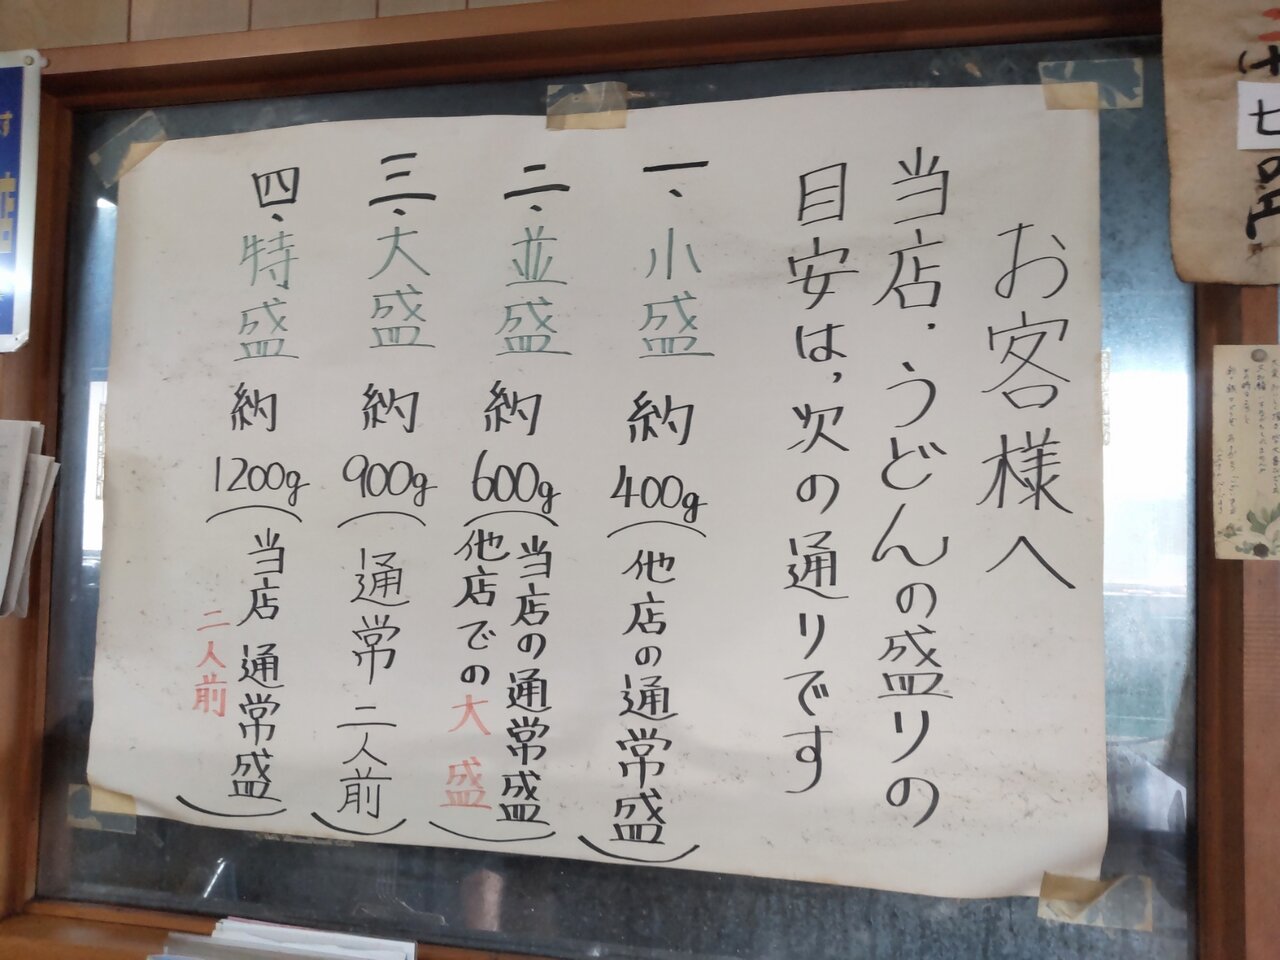 お客様へ
当店．うどんの盛りの
目安は，次の通りです
一、小盛 約 400g（他店の通常盛）
二、並盛 約 600g（当店の通常盛
他店での大盛）
三、大盛 約 900g（通常 二人前）
四、特盛 約 1200g（当店 通常盛
二人前）